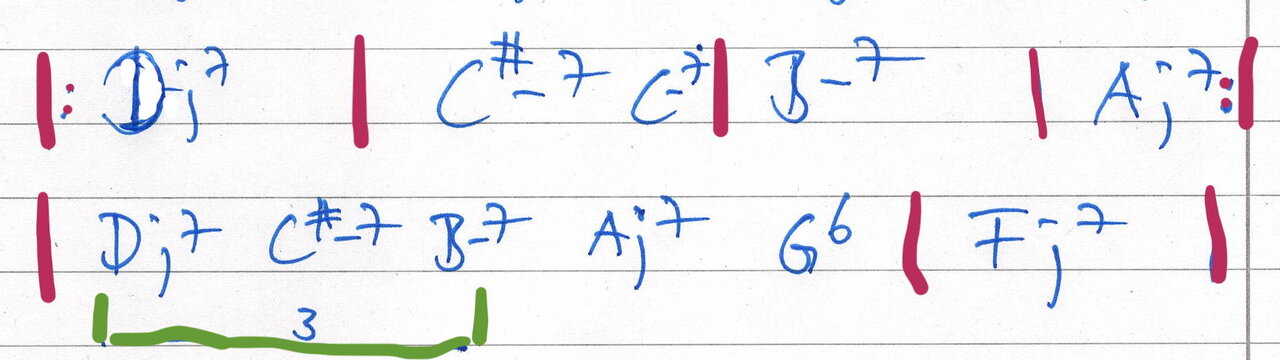 |: Dj7 | C#-7 C-7 | B-7 | Aj7 :|
| Dj7 C#-7 B-7 Aj7 G6 | Fj7 |
3